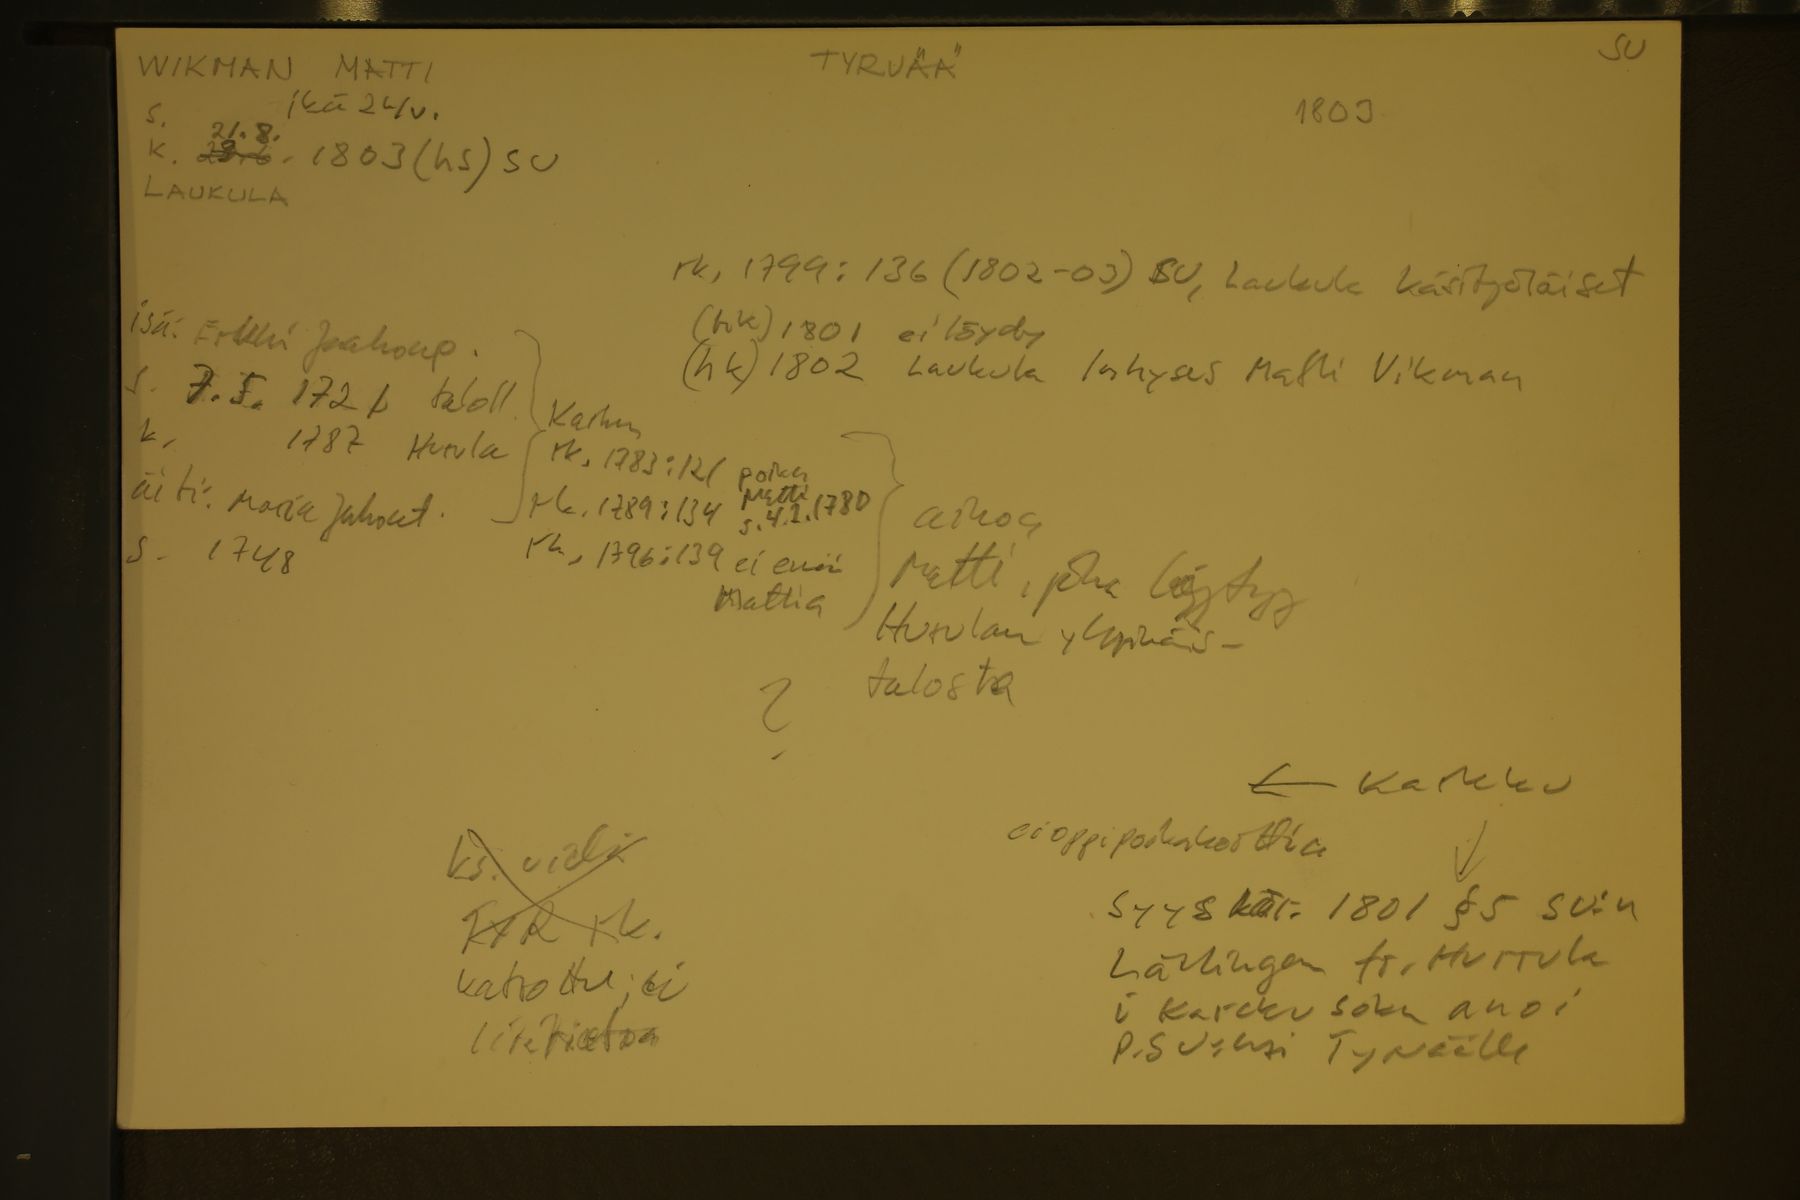 WIKMAN MATTI
TYRVÄÄ
SU
s. ikä 24 v.
1803
21.8.
k. 1803 (hs) SU
LAUKULA
rk, 1799: 136 (1802-03) SU, Laukula käsityöläiset
(hk) 1801 ei löydy
(hk) 1802 Laukula Inhyses Matti Vikman
isä: Erkki Jaakonp.
s. 7.5. 1721 taloll.
k. 1787 Hurula
äiti: Maria Juhont.
s. 1748
Karkun
rk, 1783:121 poika
rk, 1789:134 Matti
s. 4.2.1780
rk, 1796:139 ei enää
Mattia
ainoa
Matti, joka löytyy
Hurulan yksinäis-
talosta
?
← Karkku
ei oppipoikakorttia
↓
ks. vielä
TYR rk.
katsottu, ei
Syyskär. 1801 §5 SU:n
Lärlingen fr. Hurrula
i Karcku sokn anoi
p. SU:ksi Tyrväälle